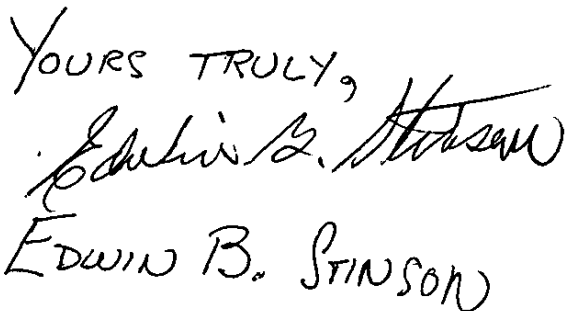 YOURS TRULY,
Edwin B. Stinson
EDWIN B. STINSON